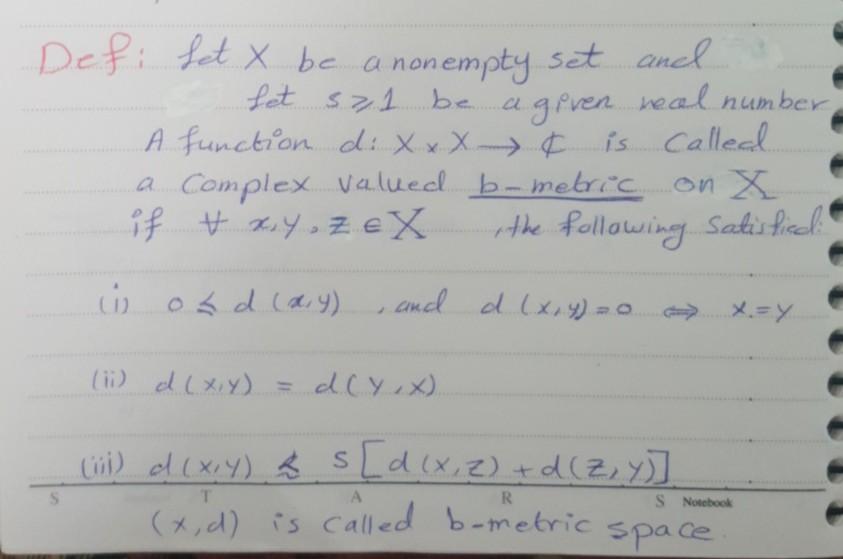 Def: Let X be a nonempty set and
Let s ≥ 1 be a given real number
A function d: X × X → ₵ is Called
a Complex Valued b-metric on X
if ∀ x, y, z ∈ X , the following Satisfied:
(i) 0 ≲ d (x,y) , and d (x,y) = 0 ⟺ x = y
(ii) d (x,y) = d (y,x)
(iii) d (x,y) ≲ s [d (x,z) + d (z,y)]
S T A R S Notebook
(x,d) is called b-metric space.